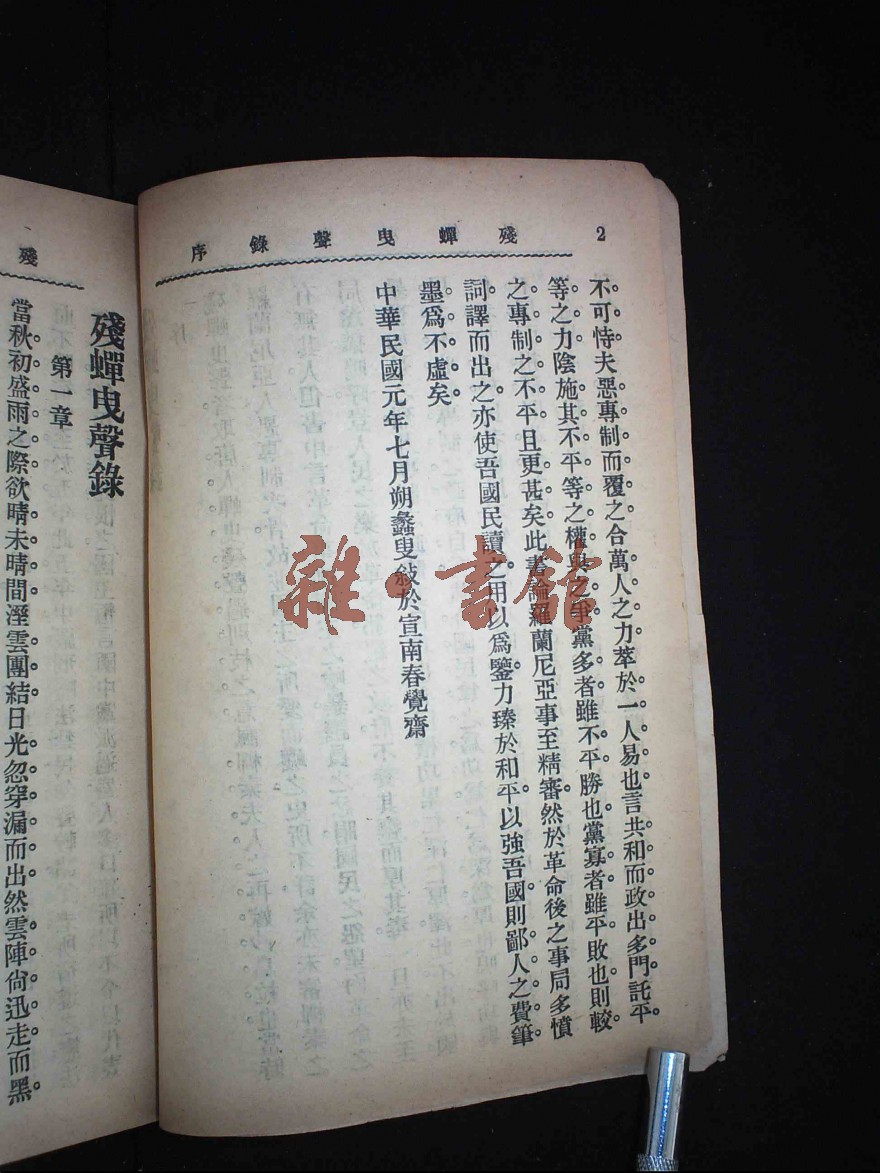 殘蟬曳聲錄序 2
不可恃。夫惡專制而覆之。合萬人之力萃於一人易也。言共和而政出多門。託平。
等之力。陰施其不平等之權。與之爭黨多者。雖不平勝也。黨寡者。雖平敗也。則較
之專制之不平且更甚矣。此書論羅蘭尼亞事至精審。然於革命後之事局多憤
詞。譯而出之。亦使吾國民讀之。用以爲鑒。力臻於和平。以強吾國。則鄙人之費筆
墨爲不虛矣。
中華民國元年七月朔蠡叟敍於宣南春覺齋
雜·書館
殘
殘蟬曳聲錄
第一章
當秋初盛雨之際。欲晴未晴間。溼雲團結。日光忽穿漏而出。然雲陣尙迅走而黑。